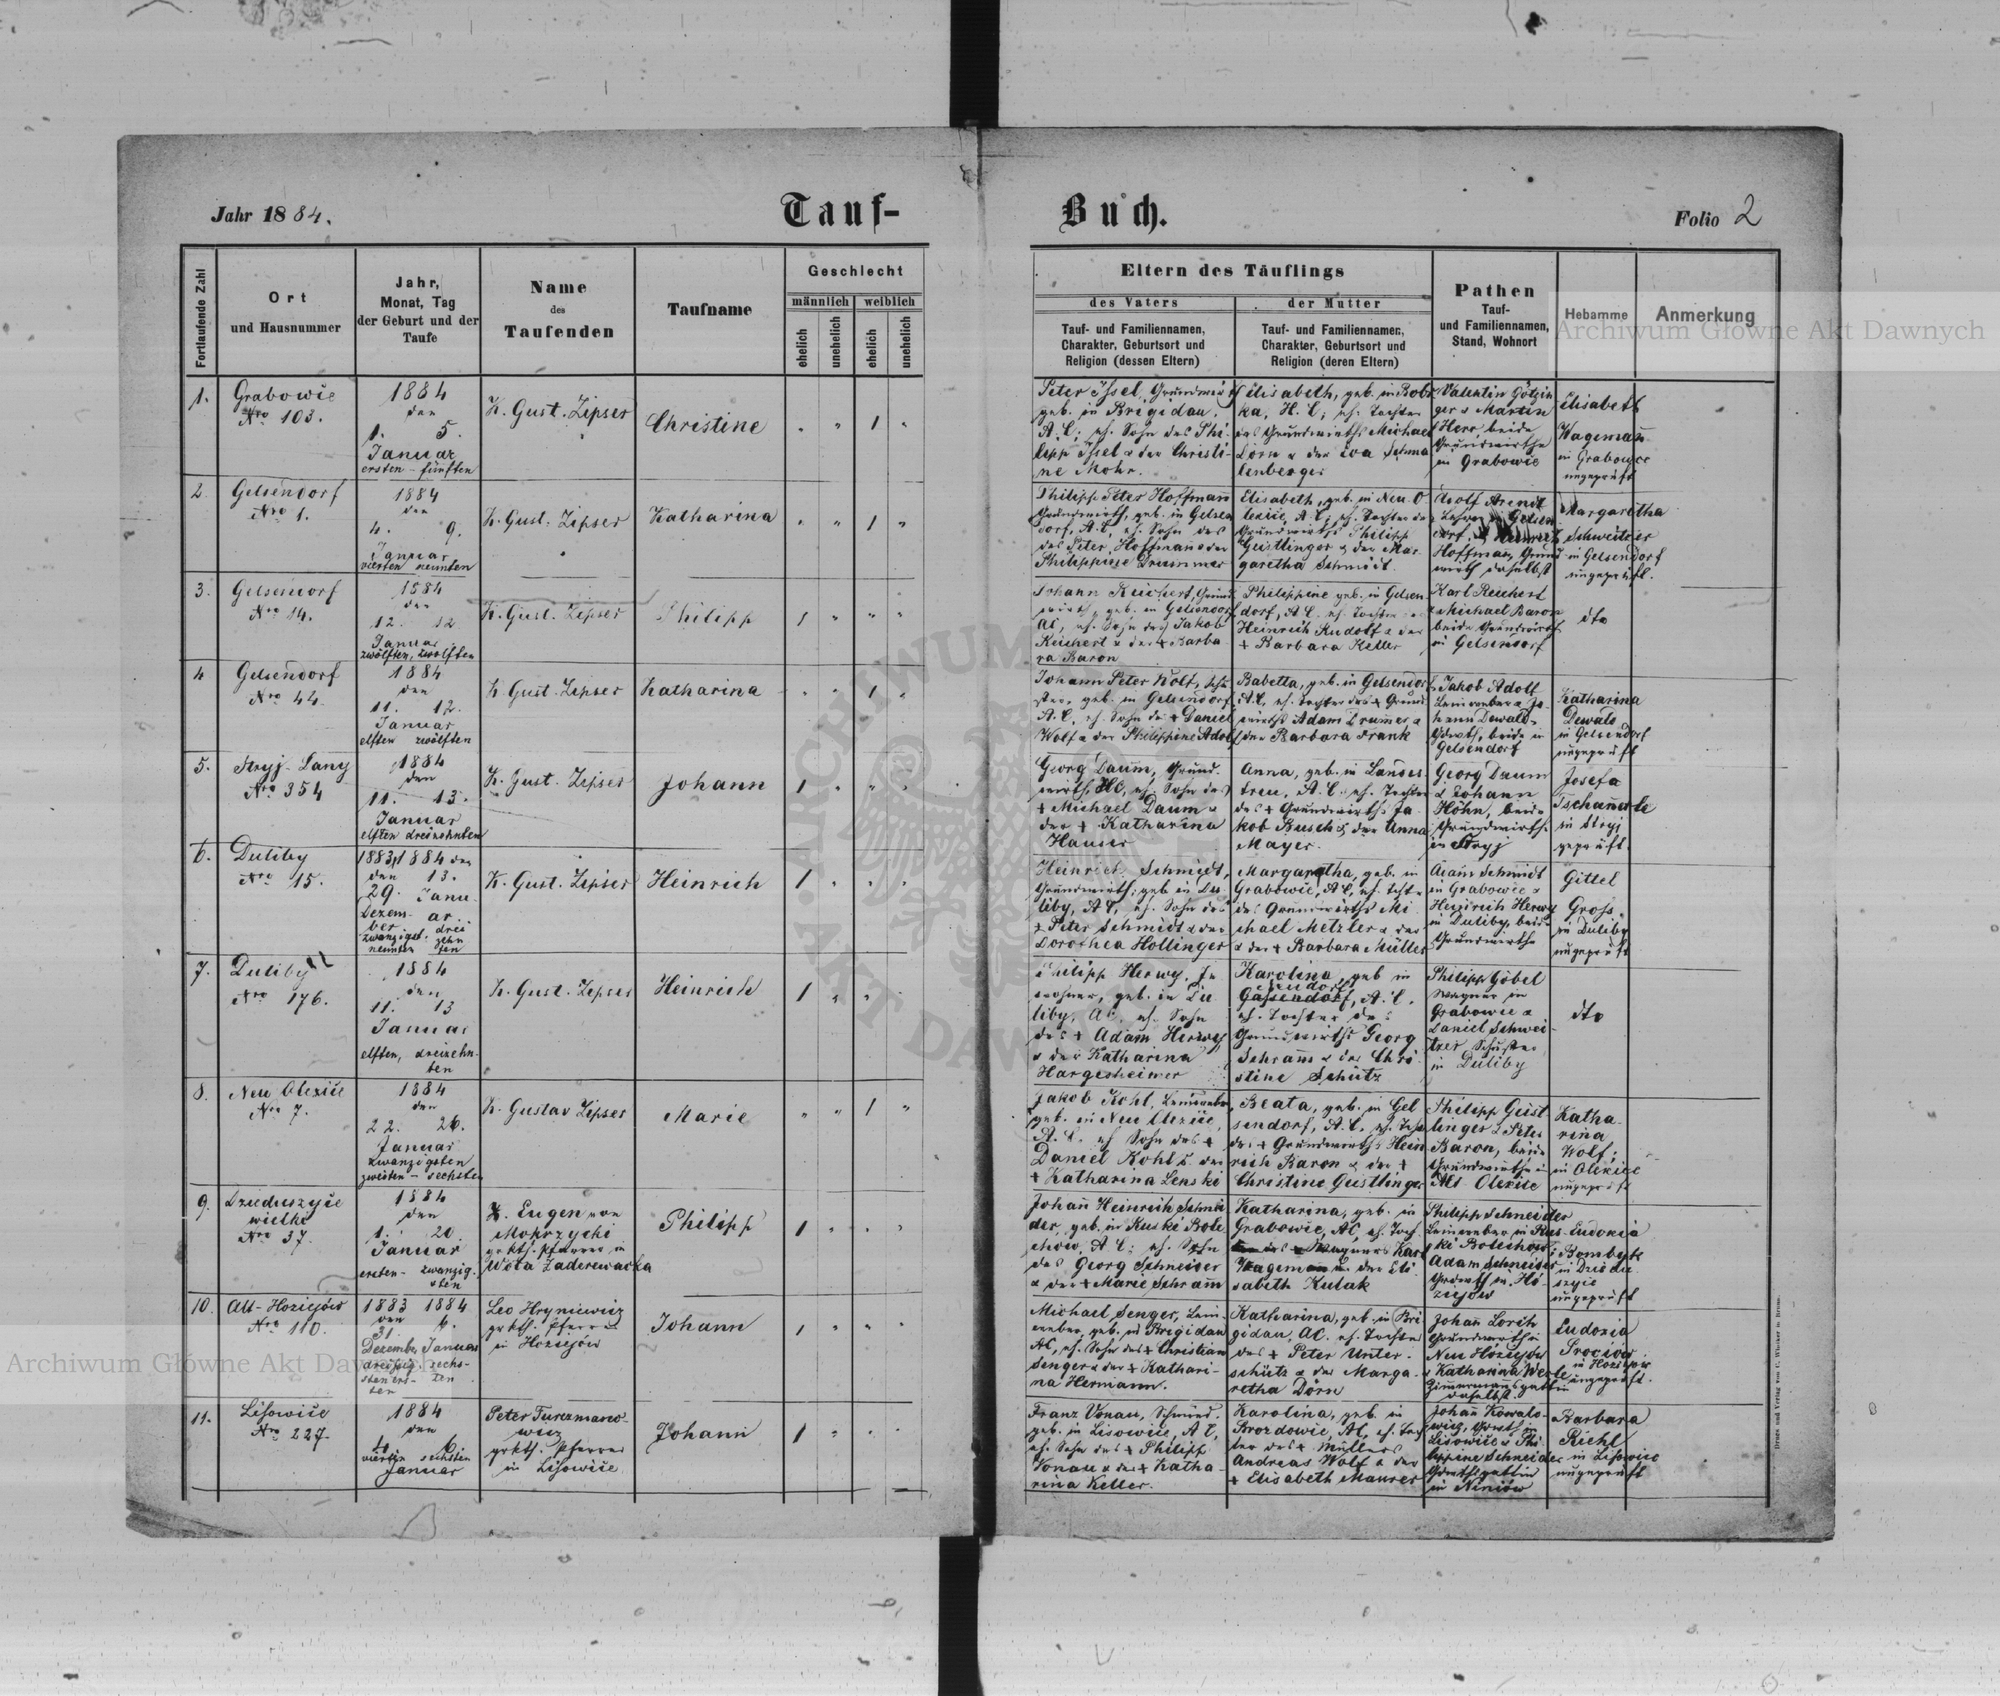 Jahr 1884.
Tauf-
Buch.
Folio 2
Fortlaufende Zahl
Ort
und Hausnummer
Jahr,
Monat, Tag
der Geburt und der
Taufe
Name
des
Taufenden
Taufname
Geschlecht
männlich
weiblich
ehelich
unehelich
ehelich
unehelich
Eltern des Täuflings
des Vaters
der Mutter
Tauf- und Familiennamen,
Charakter, Geburtsort und
Religion (dessen Eltern)
Tauf- und Familiennamen,
Charakter, Geburtsort und
Religion (deren Eltern)
Pathen
Tauf-
und Familiennamen,
Stand, Wohnort
Hebamme
Anmerkung
1.
Grabowie
Nro 103.
1884
den
1. 5.
Januar
ersten - fünften
K. Gust. Zipser
Christine
Peter Issel, Grundwirth
geb. in Brigidau,
A.C; eh. Sohn des Phi-
lipp Issel & der Christi-
ne Mohr.
Elisabeth, geb. in Bobr
ka, H.C; eh. Tochter
des Grundwirths Michael
Dorn & der Eva Schma
lenberger
Valentin Götzin
ger & Martin
Herr beide
Grundwirthe
in Grabowie
Elisabeth
Wageman
in Grabowce
ungeprüft
2.
Gelsendorf
Nro 1.
1884
den
4. 9.
Januar
vierten neunten
K. Gust. Zipser
Katharina
Philipp Peter Hoffman
Grundwirth, geb. in Gelsen
dorf, A.C, eh. Sohn des
des Peter Hoffman & der
Philippine Drummer
Elisabeth, geb. in Neu O
lexice, A.C; eh. Tochter des
Grundwirths Philipp
Geistlinger & der Mar-
garetha Schmidt.
Adolf Arendt
Lehrer in Gelsen
dorf, & Heinrich
Hoffman, Grund
wirth daselbst
Margaretha
Schweitzer
in Gelsendorf
ungeprüft.
3.
Gelsendorf
Nro 14.
1884
den
12. 12
Januar
zwölften, zwölften
K. Gust. Zipser
Philipp
Johann Reichert, Grund
wirth, geb. in Gelsendorf
AC, eh. Sohn des Jakob
Reichert & der + Barba-
ra Baron
Philippine geb. in Gelsen-
dorf, A.C. eh. Tochter des
Heinrich Rudolf & der
+ Barbara Keller
Karl Reichert
& Michael Baron
beide Grundwirthe
in Gelsendorf
dto
4
Gelsendorf
Nro 44.
1884
den
11. 12.
Januar
elften zwölften
K. Gust. Zipser
Katharina
Johann Peter Wolf, Schu
ster, geb. in Gelsendorf
A.C, eh. Sohn des + Daniel
Wolf & der Philippine Adolf
Babetta, geb. in Gelsendorf
A.C, eh. Tochter des + Grund
wirths Adam Drumer &
der Barbara Frank
Jakob Adolf
Leinweber & Jo-
hann Dewald,
Grdwth, beide in
Gelsendorf
Katharina
Dewald
in Gelsendorf
ungeprüft
5.
Stryj-Lany
Nro 354
1884
den
11. 13.
Januar
elften dreizehnten
K. Gust. Zipser
Johann
Georg Daum, Grund-
wirth HC, eh. Sohn des
+ Michael Daum &
der + Katharina
Hauser
Anna, geb. in Landes-
treu, A.C. eh. Tochter
des + Grundwirths Ja-
kob Busch & der Anna
Mayer.
Georg Daum
& Johann
Höhn, beide
Grundwirthe
in Stryj
Josefa
Tschanerle
in Stryj
geprüft.
6.
Duliby
Nro 15.
1883, 1884 den
den 13.
29. Janu-
Dezem- ar
ber drei
zwanzigst. zehn
neunten ten
K. Gust. Zipser
Heinrich
Heinrich Schmidt,
Grundwirth; geb in Du-
liby, A.C, eh. Sohn des
+ Peter Schmidt & der
Dorothea Hollinger
Margaretha, geb. in
Grabowie, A.C, eh. Tcht
des Grundwirths Mi
chael Metzler & der
& der + Barbara Müller
Adam Schmidt
in Grabowie &
Heinrich Herwy
in Duliby, beide
Grundwirthe
Gittel
Gross
in Duliby
ungeprüft
7.
Duliby
Nro 176.
1884
den
11. 13
Januar
elften, dreizehn-
ten
K. Gust. Zipser
Heinrich
Philipp Herwy, In
wohner, geb. in Du
liby, AC, eh. Sohn
des + Adam Herwy
& der Katharina
Hargesheimer
Karolina, geb in
A.C.
eh. Tochter des
Grundwirths Georg
Schram & der Chri-
stine Schütz
Philipp Göbel
Wagner in
Grabowce &
Daniel Schwei-
tzer Schuster
in Duliby
dto
8.
Neu Olexice
Nro 7.
1884
den
22. 26.
Januar
zwanzigsten
zweiten - sechsten
K. Gustav Zipser
Marie
Jakob Kohl, Leinweber
geb. in Neu Olexice,
A.C. eh Sohn des +
Daniel Kohl & der
+ Katharina Lenski
Beata, geb. in Gel
sendorf, A.C, eh. Tcht
des + Grundwirths Hein
rich Baron & der +
Christine Geistlinger
Philipp Geist
linger & Peter
Baron, beide
Grundwirthe in
Alt Olexice
Katha-
rina
Wolf;
in Olexice
ungeprüft
9.
Dzieduszyce
wielke
Nro 37.
1884
den
1. 20.
Januar
ersten - zwanzig-
sten
K. Eugen von
Mokrzycki
grkth. Pfarrer in
Wola Zaderewacka
Philipp
Johann Heinrich Schnei
der, geb. in Ruski Bole
chow, A.C; eh. Sohn
des Georg Schneider
& der + Marie Schram
Katharina, geb. in
Grabowie, AC, eh. Toch.
des + Wagners Karl
Wageman & der Eli
sabeth Kulak
Philipp Schneider
Leinweber in Rus-
ki Bolechow;
Adam Schneider
Grdwth in Ho
ziejow
Eudoxia
Bombyk
in Dziedu
szyce
ungeprüft
10.
Alt-Hoziejów
Nro 110.
1883 1884
den
31. 6.
Dezember Januar
dreißig- sechs-
sten ers- ten
ten
Leo Hryniewicz
grkth. Pfarrer
in Hoziejów
Johann
Michael Senger, Lein-
weber, geb. in Brigidau
AC, eh. Sohn des + Christian
Senger & der + Kathari-
na Hermann.
Katharina, geb. in Bri
gidau, AC. eh. Tochter
des + Peter Unter-
schütz & der Marga-
retha Dörn
Johan Lorch
Grundwirth in
Neu Hoziejów
& Katharina Werle
Zimmermansgattin
daselbst.
Eudoxia
in Hoziejow
ungeprüft.
11.
Lisowice
Nro 227.
1884
den
4. 6.
vierten sechsten
Januar
Peter Turczmano-
wicz
grkth. Pfarrer
in Lisowice
Johann
Franz Vonau, Schmied,
geb. in Lisowice, A.C,
eh. Sohn des + Philipp
Vonau & der + Katha-
rina Keller.
Karolina, geb. in
Brozdowie, AC, eh. Toch
ter des + Müllers
Andreas Wolf & der
+ Elisabeth Maurer
Johan Kowalo-
wicz, Grdwth in
Lisowice & Phi
lippine Schneider
Grdwthsgattin
in Niniów
Barbara
Riehl
in Lisowice
ungeprüft
Druck und Verlag von C. Winiker in Brünn.
Archiwum Główne Akt Dawnych
Archiwum Główne Akt Dawnych
ARCHIWUM
AKT DAWNYCH